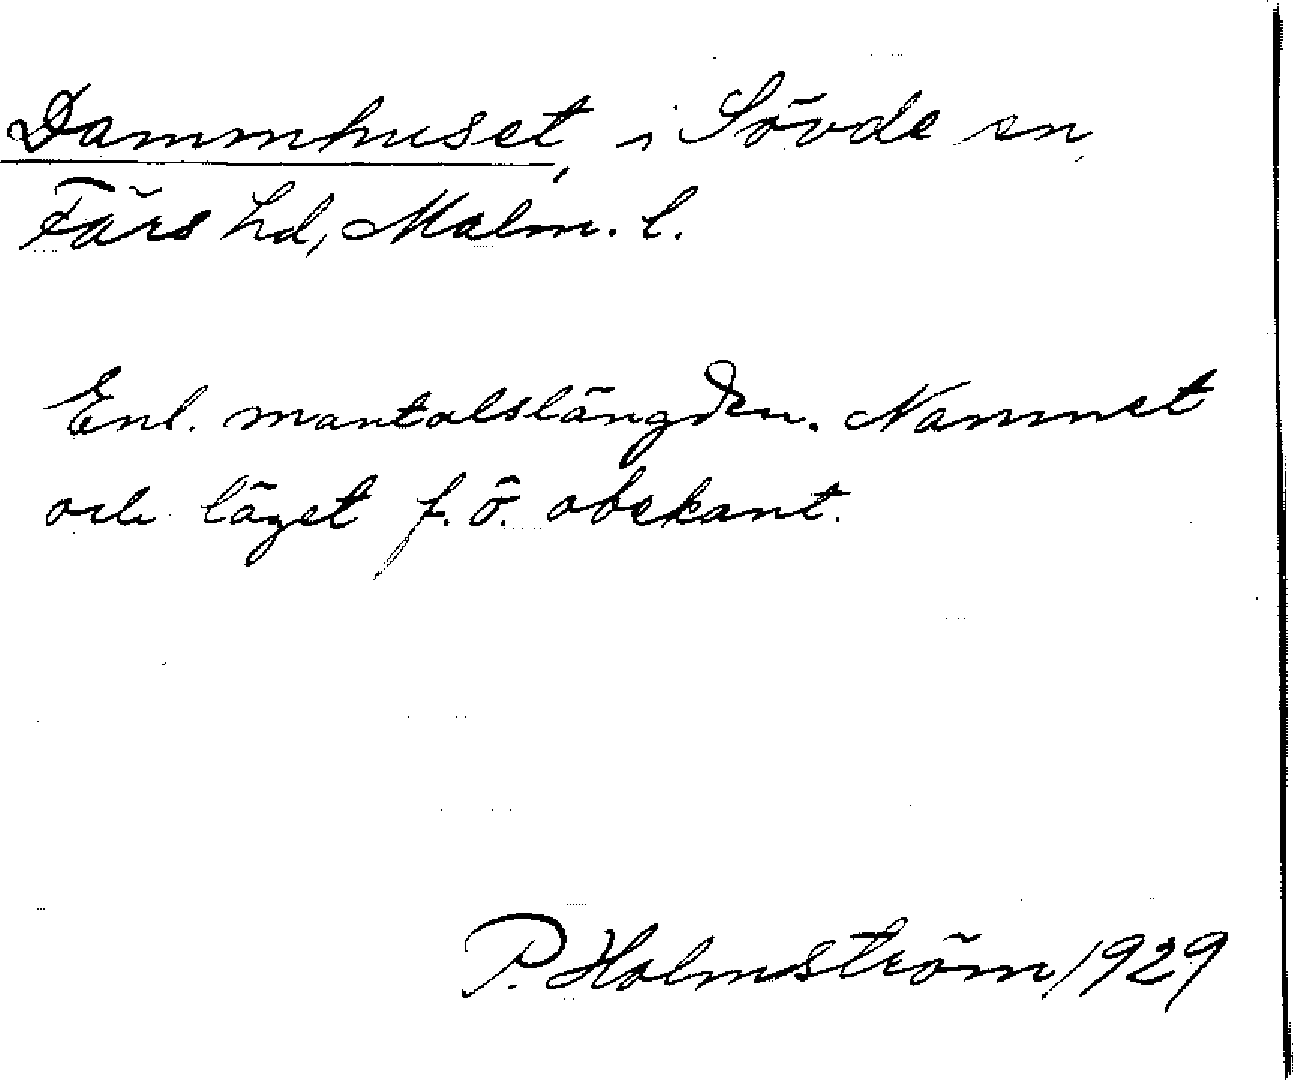 Dammhuset, i Sövde sn,
Färs hd, Malm. l.
Enl. mantalslängden. Namnet
och läget f. ö. obekant.
P. Holmström 1929